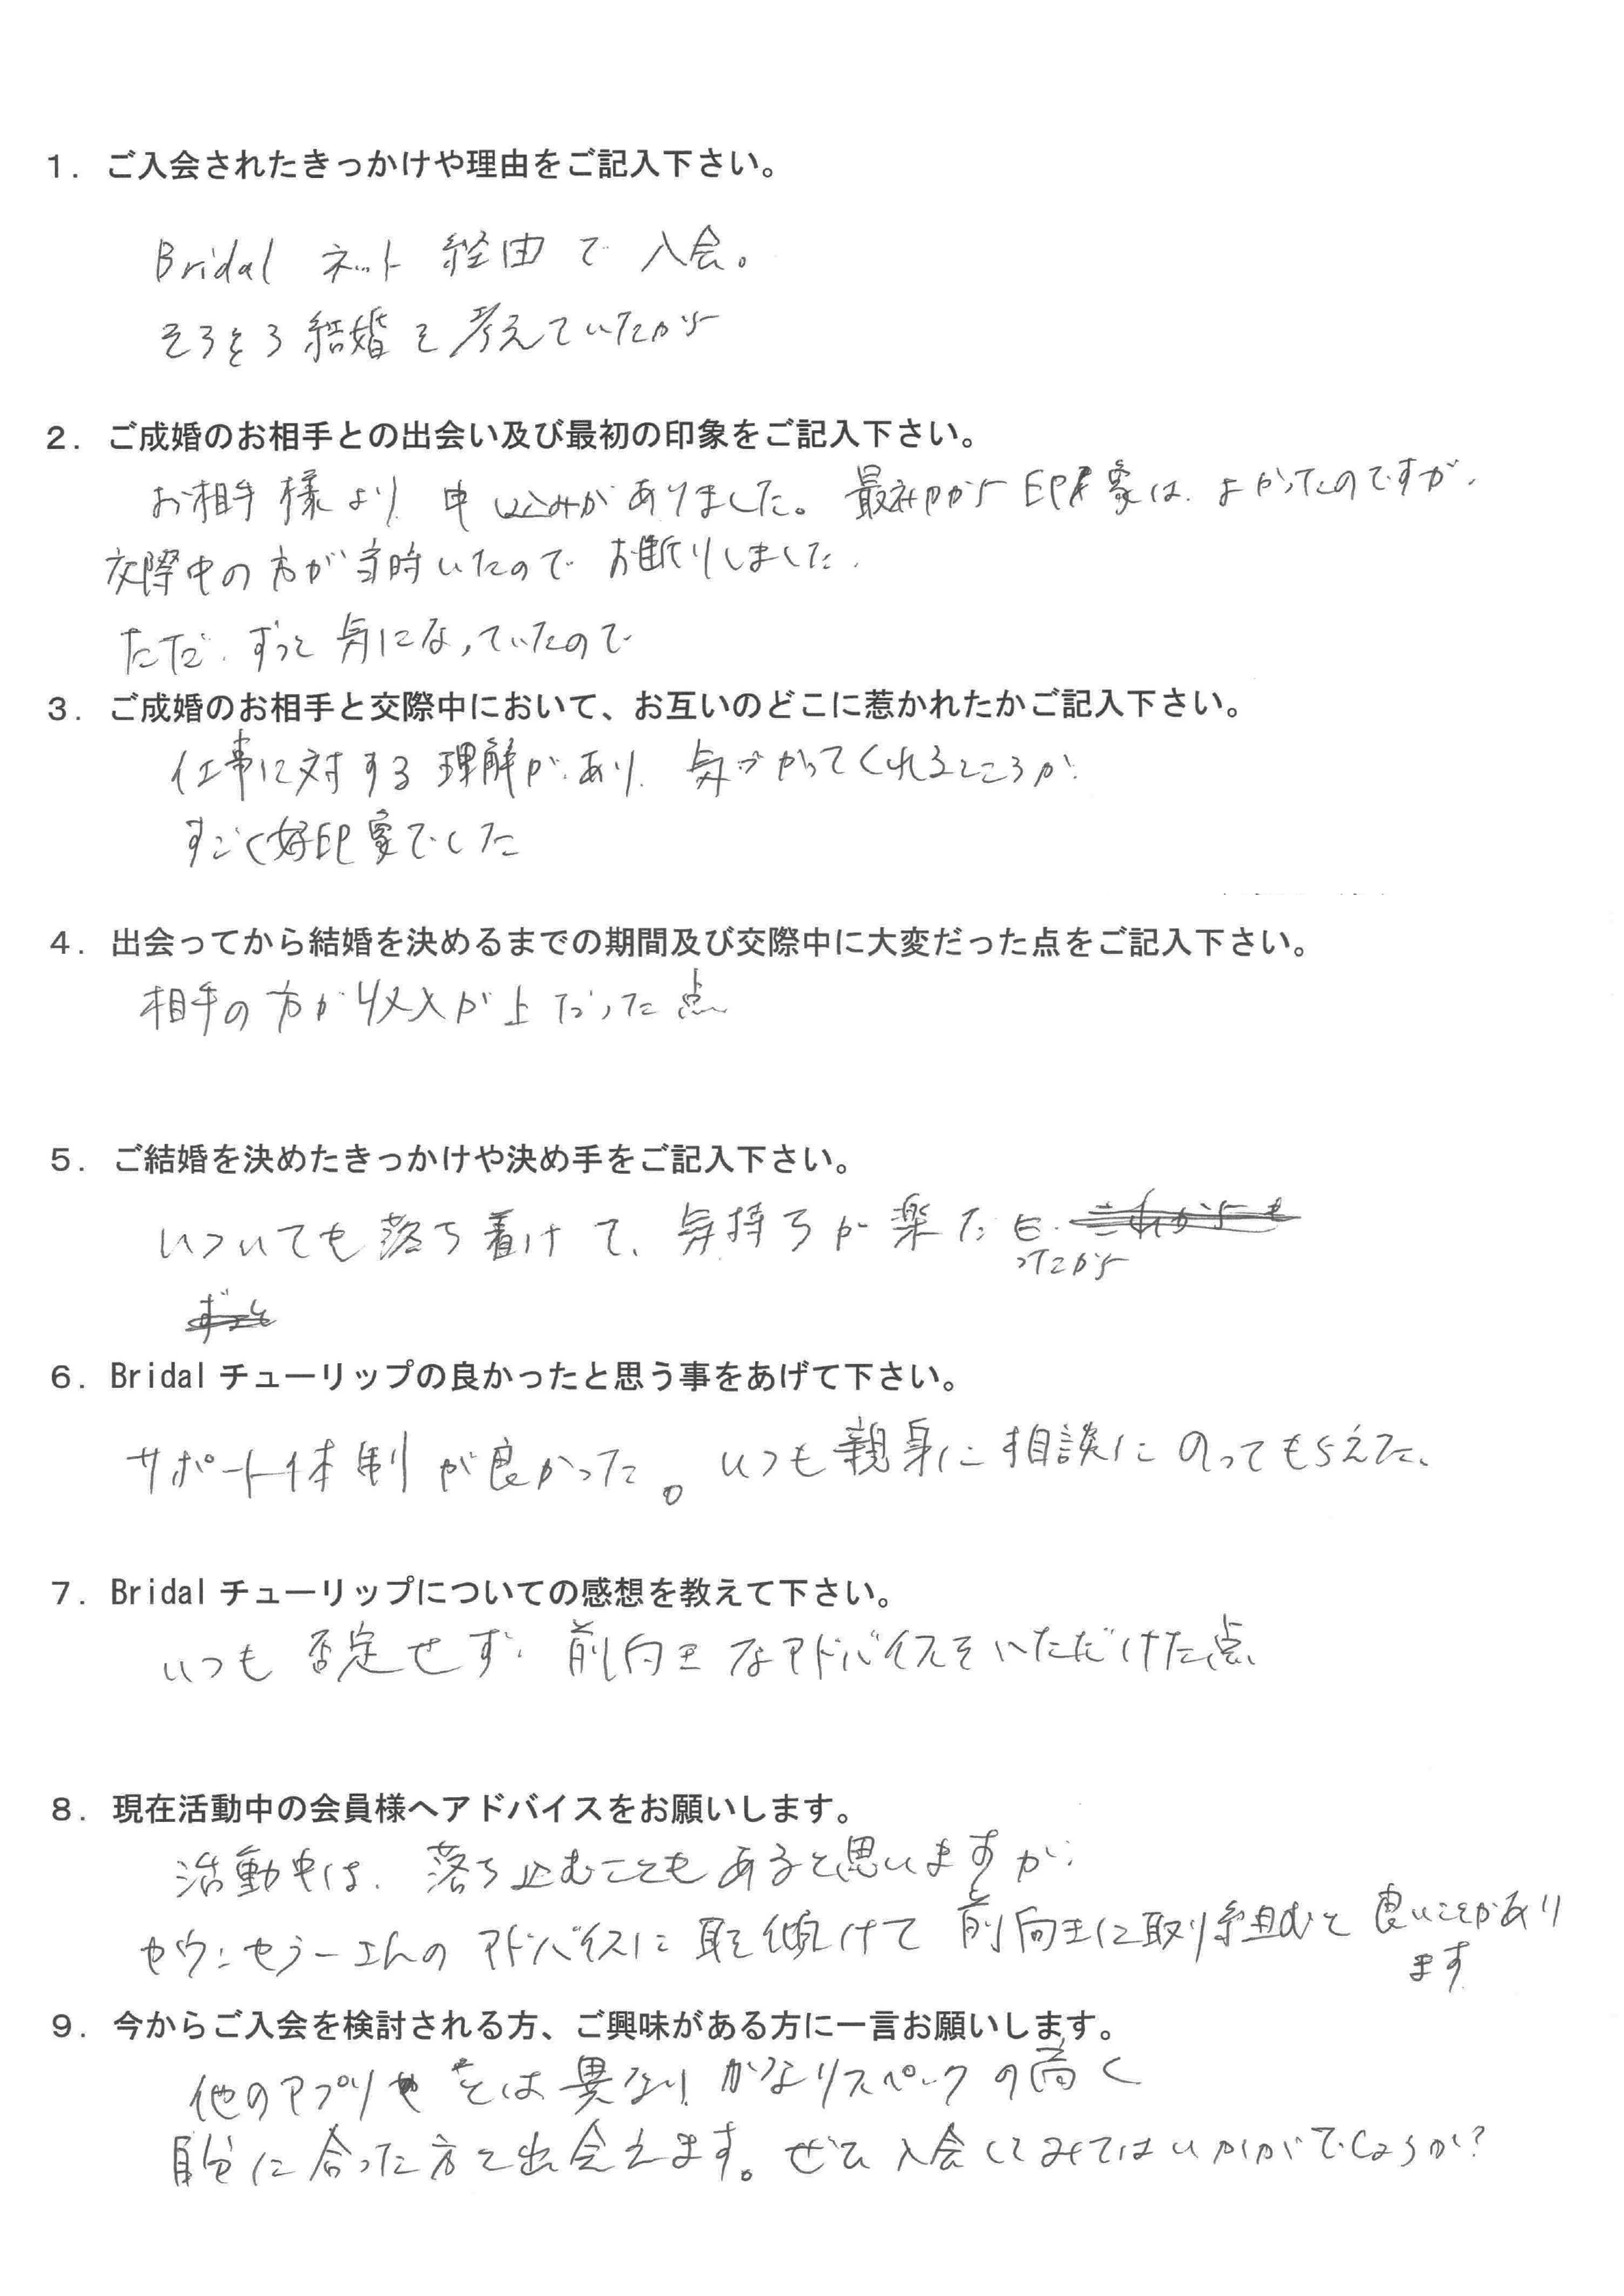 1．ご入会されたきっかけや理由をご記入下さい。
Bridal ネット 経由で 入会。
そろそろ結婚を考えていたから
2．ご成婚のお相手との出会い及び最初の印象をご記入下さい。
お相手様より、申し込みがありました。最初から印象は、よかったのですが、
交際中の方が当時いたので お断りしました。
ただ、ずっと気になっていたので
3．ご成婚のお相手と交際中において、お互いのどこに惹かれたかご記入下さい。
仕事に対する理解があり、気づかってくれるところが、
すごく好印象でした
4．出会ってから結婚を決めるまでの期間及び交際中に大変だった点をご記入下さい。
相手の方が収入が上だった点
5．ご結婚を決めたきっかけや決め手をご記入下さい。
いついても落ち着けて、気持ちが楽だ
ったから
6．Bridalチューリップの良かったと思う事をあげて下さい。
サポート体制が良かった。いつも親身に相談にのってもらえた、
7．Bridalチューリップについての感想を教えて下さい。
いつも否定せず、前向きなアドバイスをいただけた点、
8．現在活動中の会員様へアドバイスをお願いします。
活動中は、落ち込むこともあると思いますが、
カウンセラーさんのアドバイスに耳を傾けて前向きに取り組むと良いことがあり
ます
9．今からご入会を検討される方、ご興味がある方に一言お願いします。
他のアプリとは異なり、かなりスペックの高く
自分に合った方と出会えます。ぜひ入会してみてはいかがでしょうか?